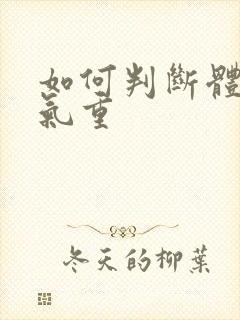 如何判斷體
氣重
冬天的柳葉